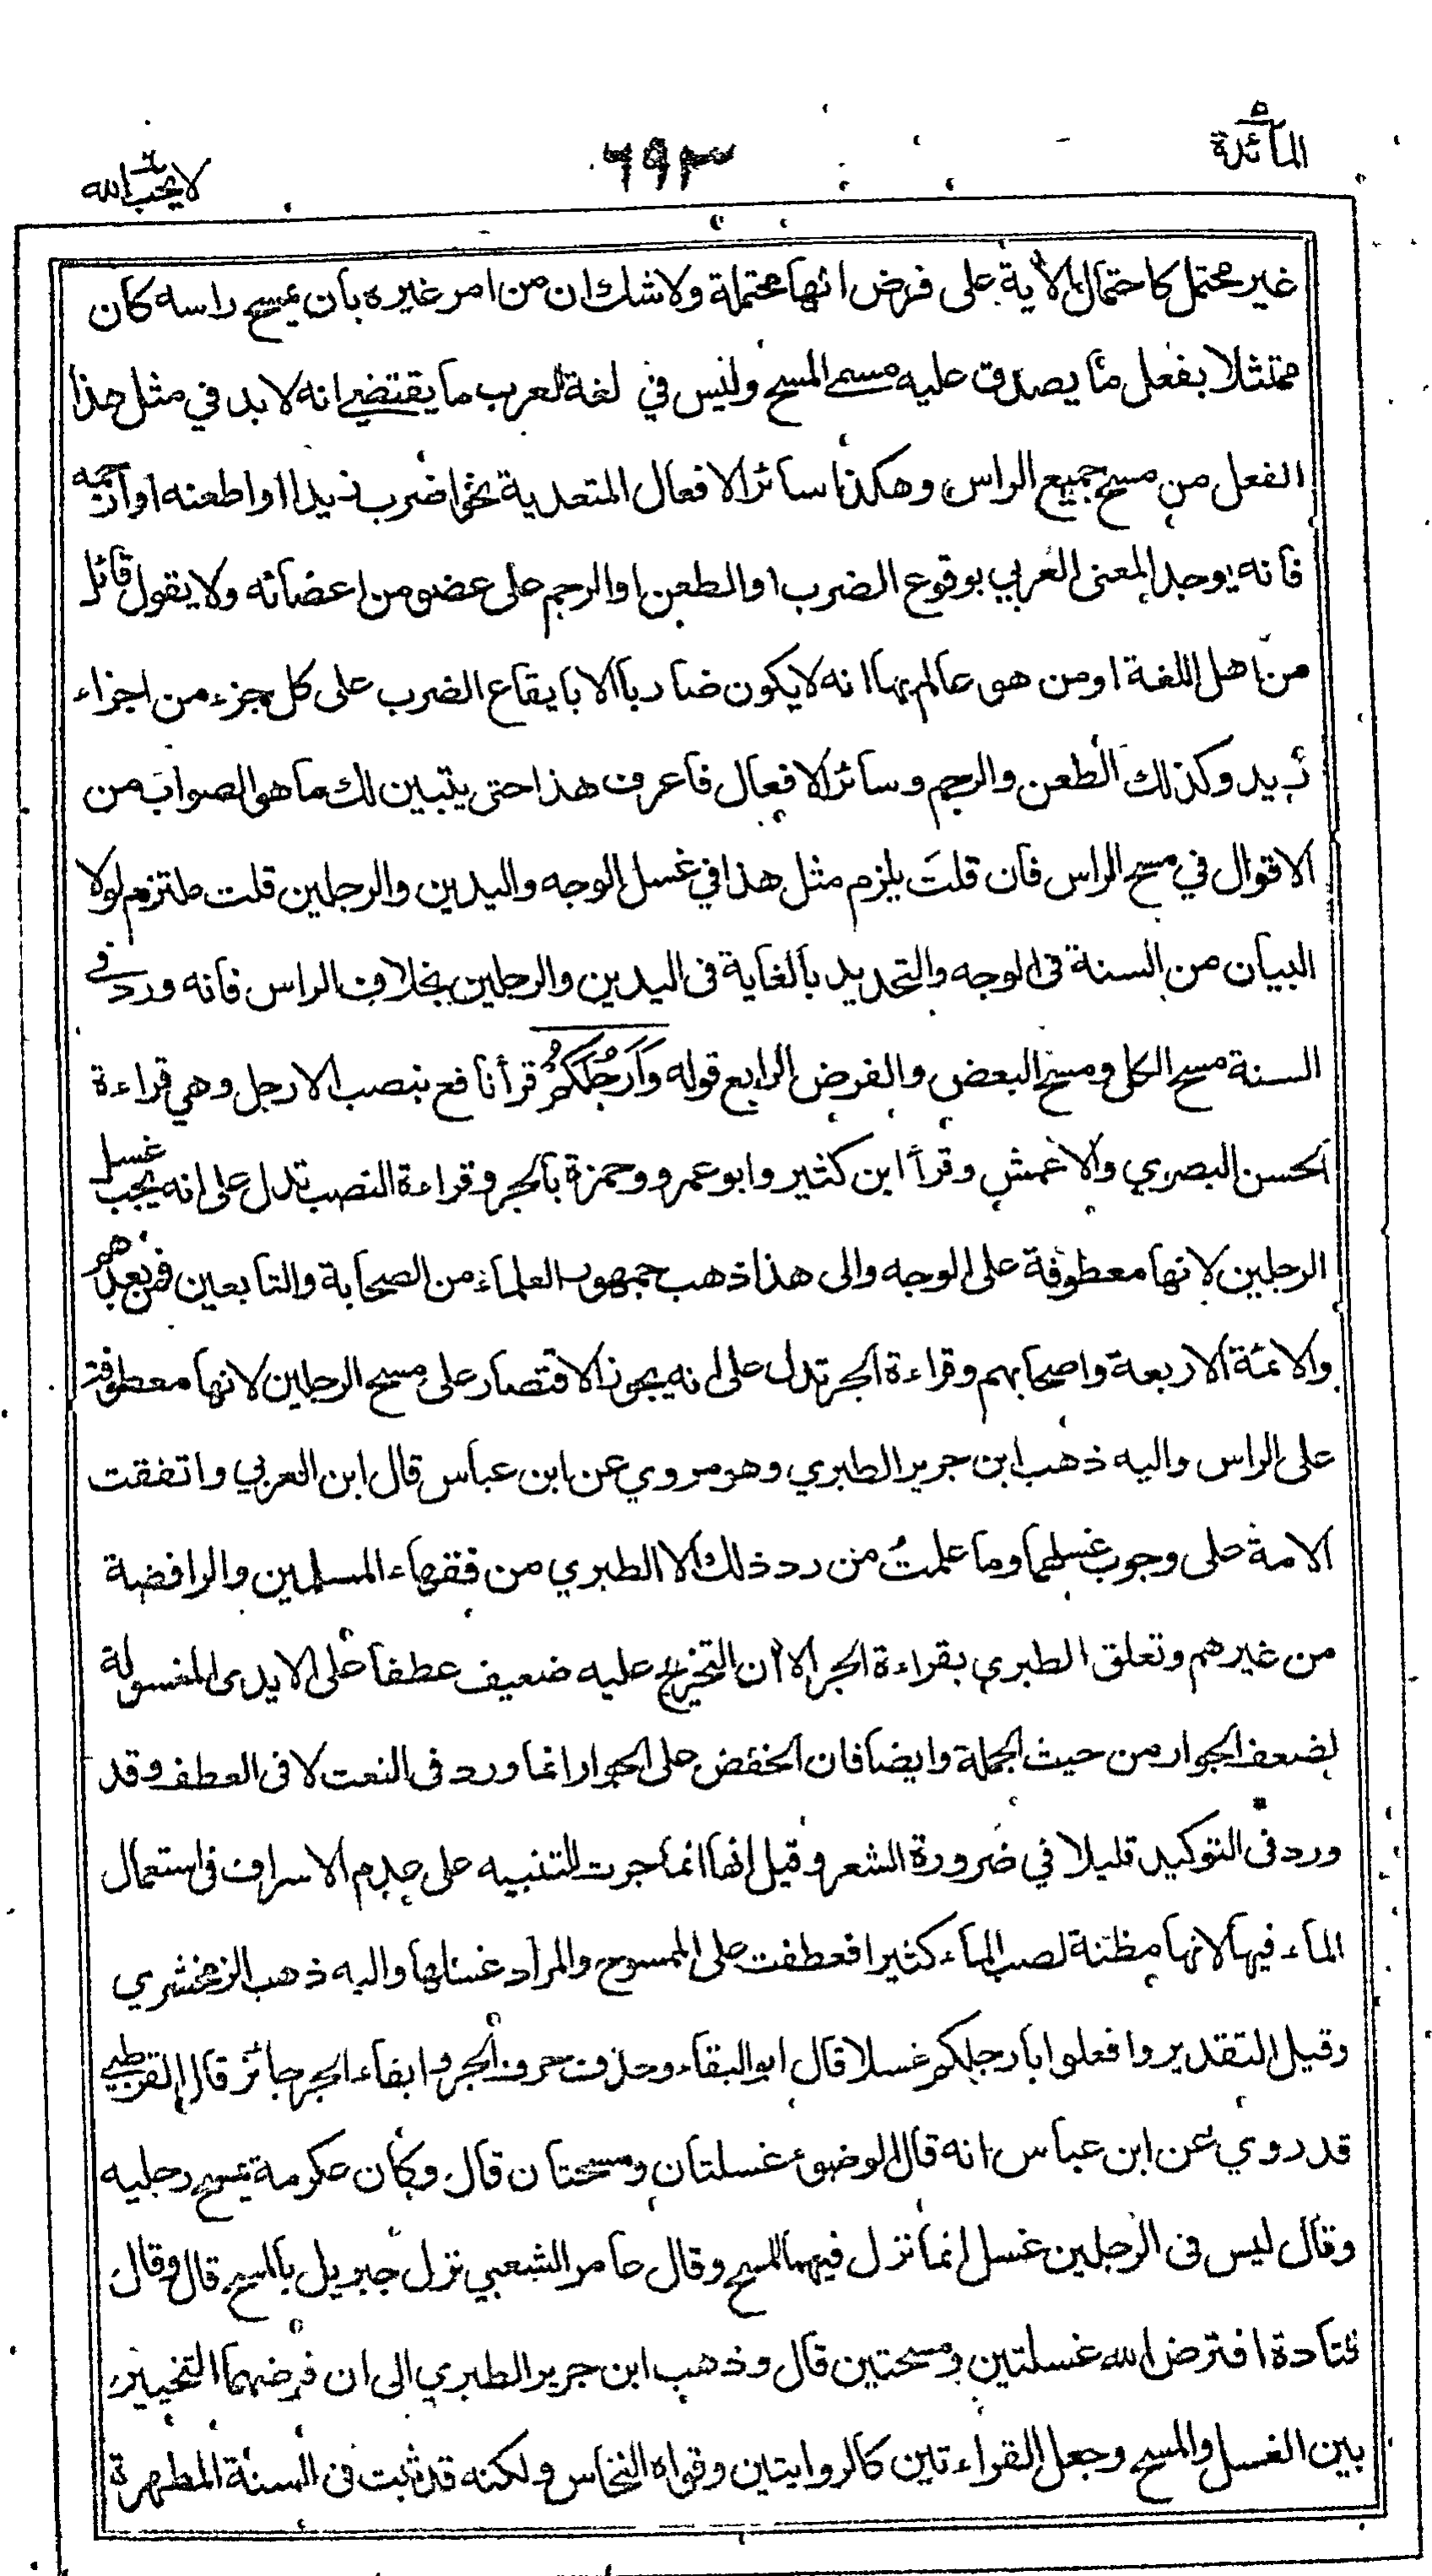 المائدة ٥
٦٩٣
لا يحب الله ٦
غير محتمل كاحتمال الأية على فرض انها محتملة ولا شك ان من امر غيره بان يمسح راسه كان
ممتثلا بفعل ما يصدق عليه مسمى المسح وليس في لغة العرب ما يقتضي انه لا بد في مثل هذا
الفعل من مسح جميع الراس وهكذا سائر الافعال المتعدية نحو اضرب زيدا او اطعنه او ارجمه
فانه يوجد المعنى العربي بوقوع الضرب او الطعن او الرجم على عضو من اعضائه ولا يقول قائل
من اهل اللغة او من هو عالم بها انه لا يكون ضاربا الا بايقاع الضرب على كل جزء من اجزاء
زيد وكذلك الطعن والرجم وسائر الافعال فاعرف هذا حتى يتبين لك ما هو الصواب من
الاقوال في مسح الراس فان قلت يلزم مثل هذا في غسل الوجه واليدين والرجلين قلت ملتزم لولا
البيان من السنة في الوجه والتحديد بالغاية في اليدين والرجلين بخلاف الراس فانه ورد في
السنة مسح الكل ومسح البعض والفرض الرابع قوله وَاَرْجُلَكُمْ قرأ نافع بنصب الارجل وهي قراءة
الحسن البصري والاعمش وقرأ ابن كثير وابو عمرو وحمزة بالجر وقراءة النصب تدل على انه يجب غسل
الرجلين لانها معطوفة على الوجه والى هذا ذهب جمهور العلماء من الصحابة والتابعين فمن بعدهم
والائمة الاربعة واصحابهم وقراءة الجر تدل على انه يجوز الاقتصار على مسح الرجلين لانها معطوفة
على الراس واليه ذهب ابن جرير الطبري وهو مروي عن ابن عباس قال ابن العربي واتفقت
الامة على وجوب غسلهما وما علمتُ من رد ذلك الا الطبري من فقهاء المسلمين والرافضة
من غيرهم وتعلق الطبري بقراءة الجر الا ان التخريج عليه ضعيف عطفا على الايدى المغسولة
لضعف الجوار من حيث الجملة وايضا فان الخفض على الجوار انما ورد فى النعت لا فى العطف وقد
ورد فى التوكيد قليلا في ضرورة الشعر وقيل انها انما جرت للتنبيه على عدم الاسراف فى استعمال
الماء فيها لانها مظنة لصب الماء كثيرا فعطفت على الممسوح والمراد غسلها واليه ذهب الزمخشري
وقيل التقدير وافعلوا بارجلكم غسلا قال ابو البقاء وحذف حرف الجر وابقاء الجر جائز قال القرطبي
قد روي عن ابن عباس انه قال الوضوء غسلتان ومسحتان قال وكان عكرمة يمسح رجليه
وقال ليس فى الرجلين غسل انما نزل فيهما المسح وقال عامر الشعبي نزل جبريل بالمسح قال وقال
قتادة افترض الله غسلتين ومسحتين قال وذهب ابن جرير الطبري الى ان فرضهما التخيير
بين الغسل والمسح وجعل القراءتين كالروايتين وقواه النحاس ولكنه قد ثبت فى السنة المطهرة